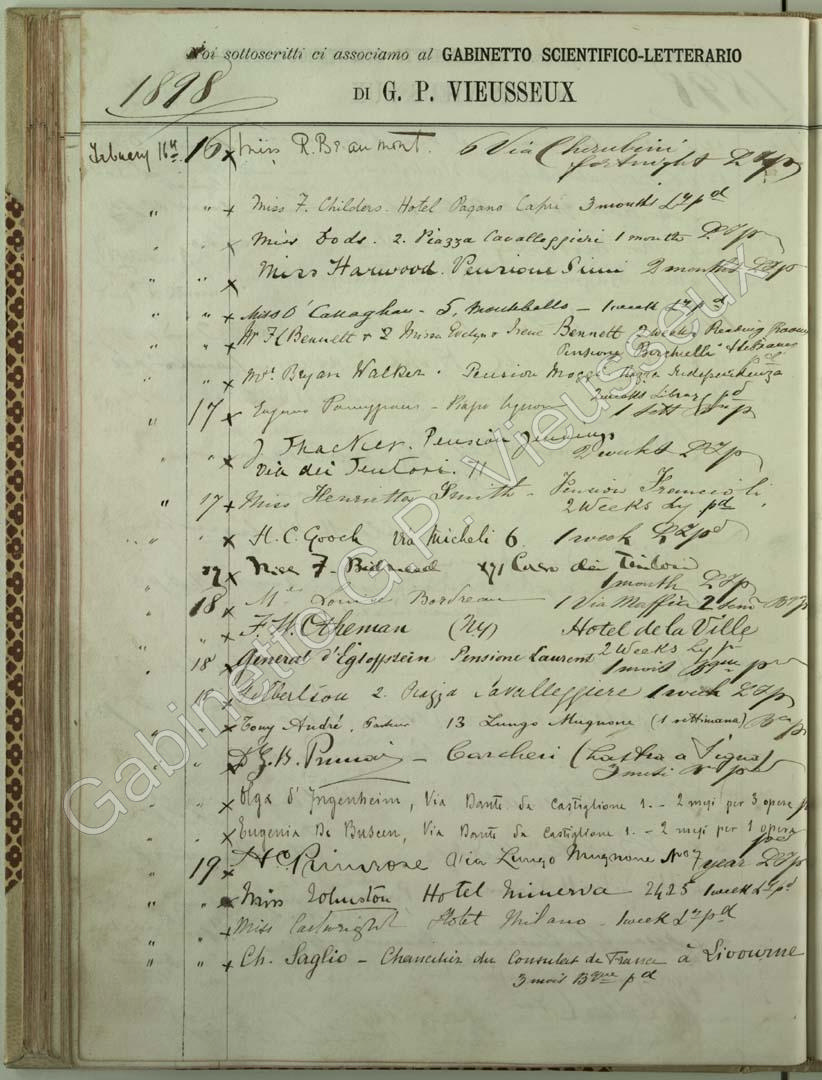 Noi sottoscritti ci associamo al GABINETTO SCIENTIFICO-LETTERARIO
1898
DI G. P. VIEUSSEUX
February 16th 16 x Miss R. Beaumont. 6 Via Cherubini
fortnight
" " x Miss F. Childers. Hotel Pagano Capri 3 months Ly pd
" x Miss Dods. 2. Piazza Cavalleggieri 1 month
" " x Miss Harwood. Pensione Simi 2 months
" " x Miss O'Callaghan - 5, Montebello - 1 week Ly pd
" x Mr F C Bennett & 2 Misses Evelyn & Irene Bennett 2 weeks Reading Rooms
Pensione Borchielli
" " x Mrs Bryan Walker. Pension Piazza Indipendenza
2 weeks Library pd
17 x
J. Thacker. Pension Jennings
" x Via dei Tintori. 11 2 weeks
" 17 x Miss Henrietta Smith - Pension Francioli,
2 Weeks Ly pd
" " x H. C. Gooch Via Micheli 6 1 week
Miss F. Corso dei Tintori
1 month
18 x Louise Bordreau 1 Via Maffia
" x F. W. Otheman (NY) Hotel de la Ville
2 Weeks Ly
18 x General d'Egloffstein Pensione Laurent 1 mois
18 x 2. Piazza Cavalleggiere 1 week
" " x Tony André, Pasteur 13 Lungo Mugnone (1 settimana)
" x Carcheri (Lastra a Signa)
3 mesi
" " x Olga d'Jngenheim, Via Dante da Castiglione 1. - 2 mesi per 3 opere
" " x Eugenia De Buseen, Via Dante da Castiglione 1. - 2 mesi per 1 opera
" 19 x Primrose Via Lungo Mugnone No 7 year
" " x Miss Johnston Hotel Minerva 2425 1 week Ly pd
" " x Miss Cartwright Hotel Milano - 1 week Ly pd
" " x Ch. Saglio - Chancelier du Consulat de France à Livourne
3 mois Bque pd
Gabinetto G.P. Vieusseux